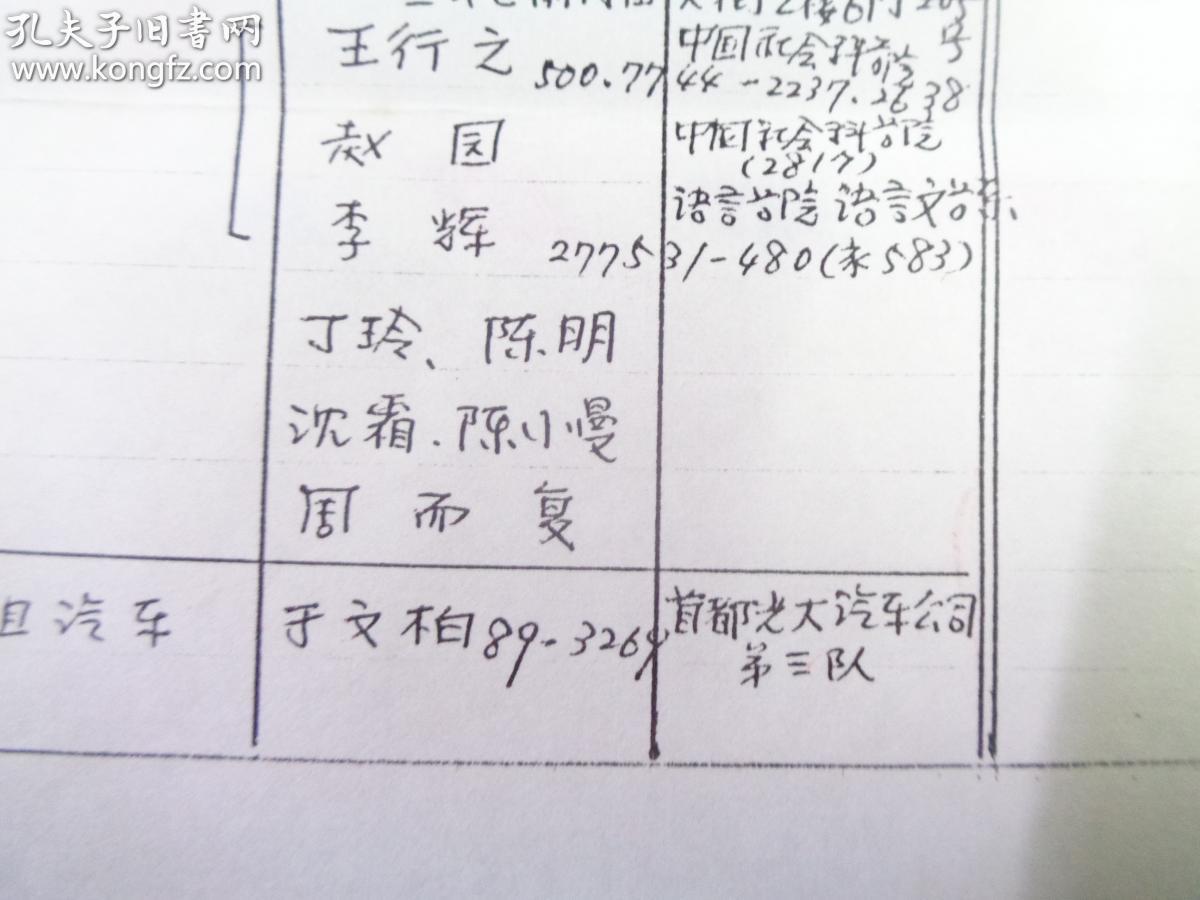 孔夫子旧书网
www.kongfz.com
2楼6门
号
王行之 500.77 44-2237.2638
中国社会科学院
赵园
中国社会科学院
(2817)
李辉
语言学院 语言文学系
277531-480(未583)
丁玲、陈明
沈霜.陈小曼
周而复
汽车
于文柏 89-3264
首都 大汽车公司
第三队